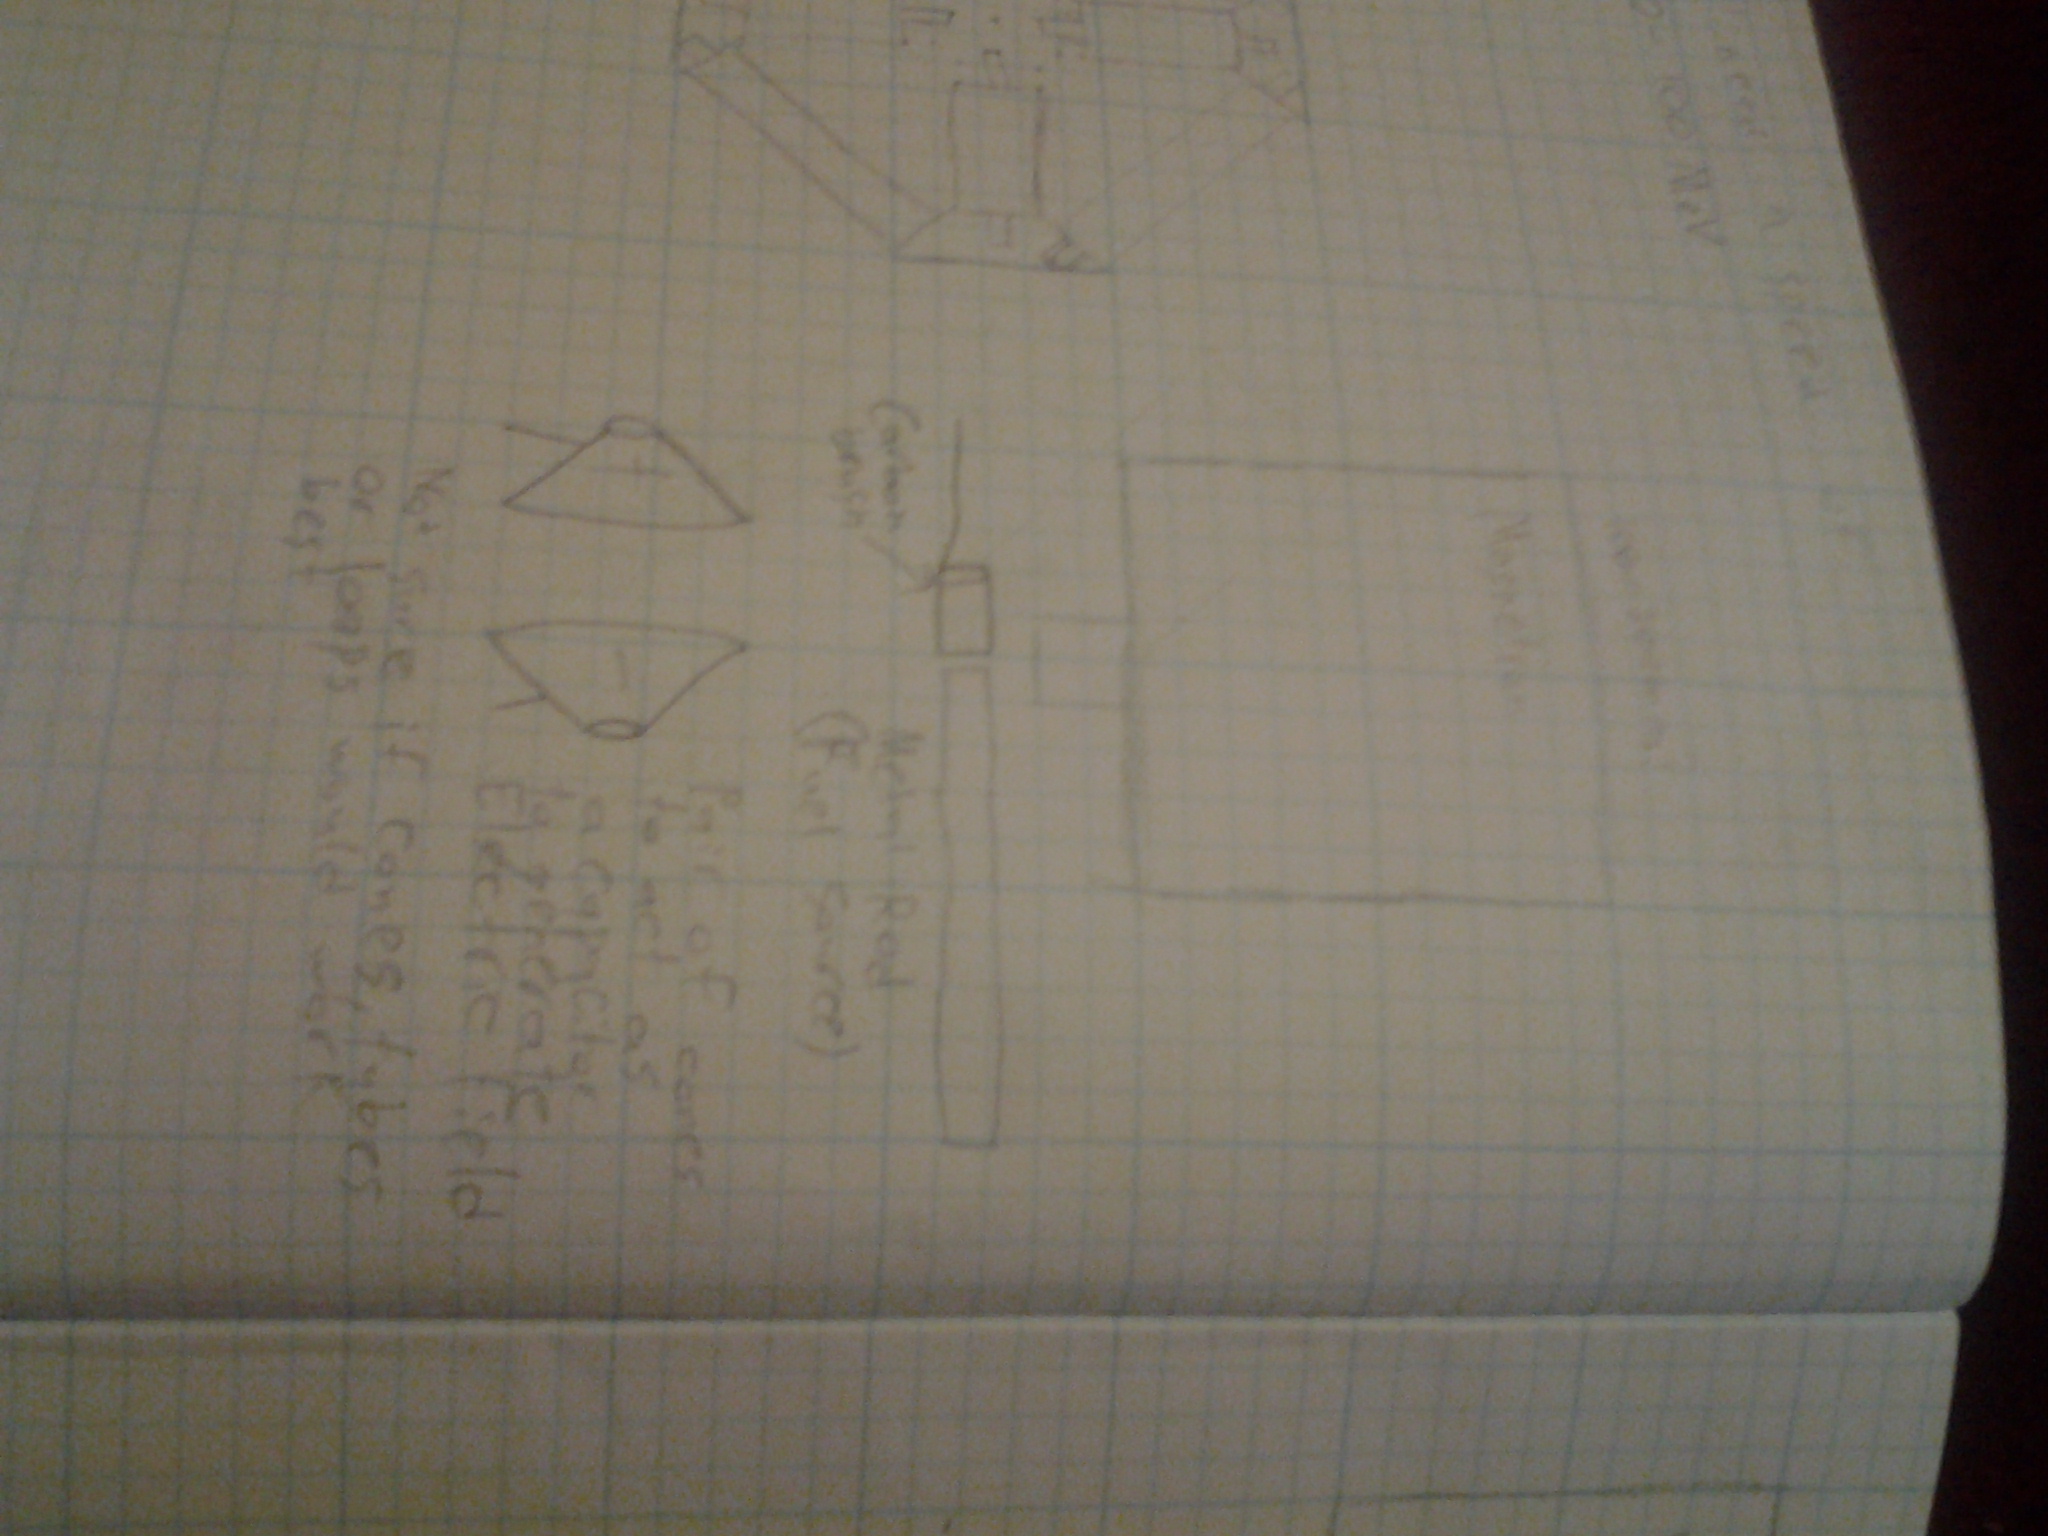 need a speed
100 MeV
Magnetron
Carbon
brush
Metal Rod
(Fuel Source)
+
-
Pair of cones
to act as
a capacitor
to generate
Electric Field
Not sure if cones, tubes
or loops would work
best